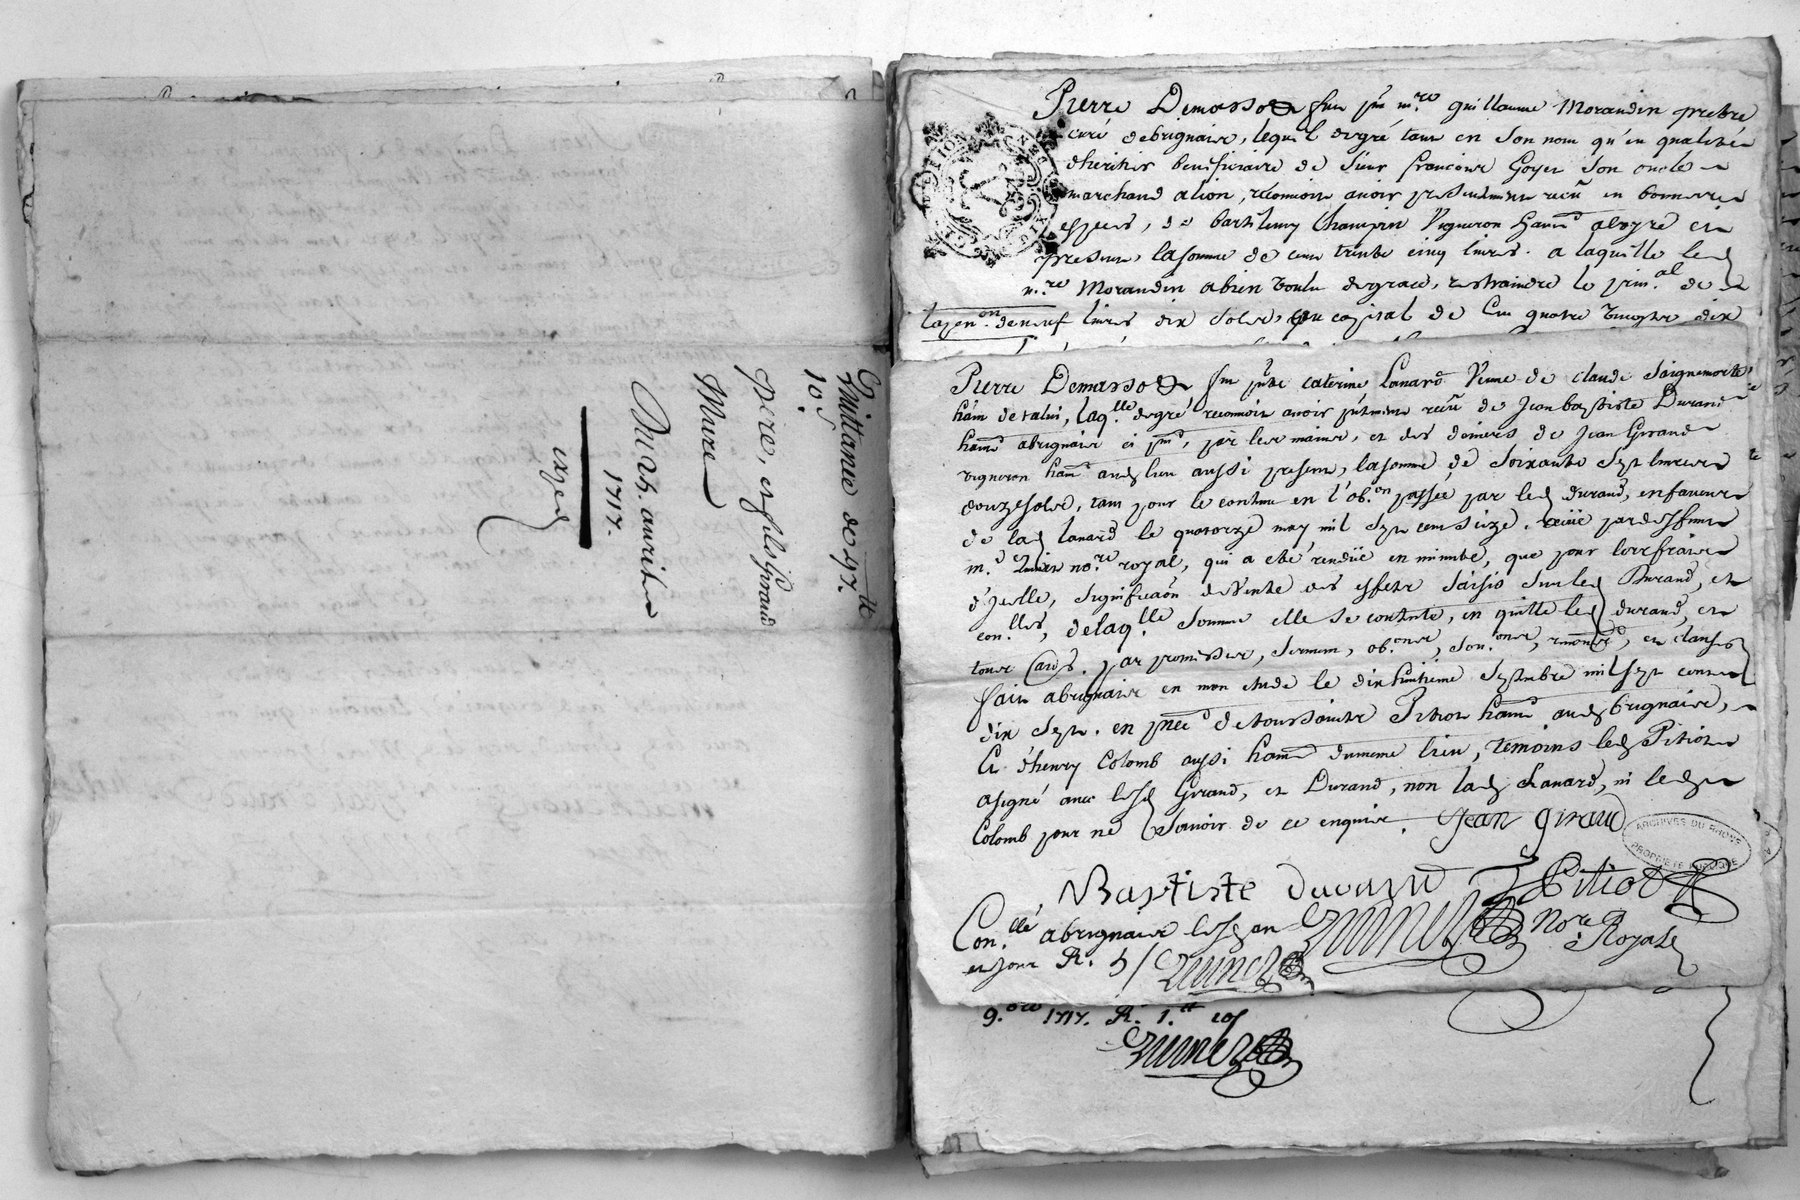 Quittance de 97.tt
10.s
père, et fils Giraud
Mure
Du 25. avril
1717.
exped
Pierre Demasso &c. fut pnt m.re guillaume Morandin prebtre
curé debrignais, lequel degré tant en son nom qu'en qualité
dheritier beneficiaire de sieur francois Goyet son oncle
marchand alion, reconnoit avoir presentement reçu en bonnes
especes, de bartelemy Champin Vigneron habitt
present, lasomme de cent trente cinq livres. a laquelle led
m.re Morandin abien voulu degrace, restraindre le prin.al de
lapen.on deneuf livres dix sols, au capital de Cent quatre vingts dix
Pierre Demasso &c. fut pnte caterine Lanard Veuve de claude
habitt, laq.lle degré reconnoit avoir pntement reçu de Jean baptiste Durand
habitt abrignais ci pnt, par les mains, et des deniers de Jean Giraud
vigneron habitt aud lieu aussi present, lasomme de soixante sept livres
douze sols, tant pour le contenu en l'ob.on passée par led durand, enfaveur
de lad lanard le quatorze may mil sept cent seize. recüe pardevant
m.e no.re royal, qui a eté rendüe en minute, que pour les fraix
d'jcelle, signification devente des effets saisis surled Durand, et
con.lles, delaq.lle somme elle se contente, en quitte led durand, et
tous autres. par promesses, serment, ob.ons, soû.ons, renon.ons, et clauses
fait abrignais en mon etude le dix huitieme septembre mil sept cent
dix sept. en pnce detoussaints Pitiot habitt aud brignais,
Et d'henry Colomb aussi habitt dumeme lieu, temoins led Pitiot
asigné avec lesd Giraud, et Durand, non lad Lanard, ni led
Colomb pour ne scavoir de ce enquis. Jean giraud
ARCHIVES DU RHONE
PROPRIETE PUBLIQUE
Baptiste durand Pitiot
Con.llé abrignais lesd an No.re
et jour R. 5s Royal
9.bre 1717. R. 1.tt 10s